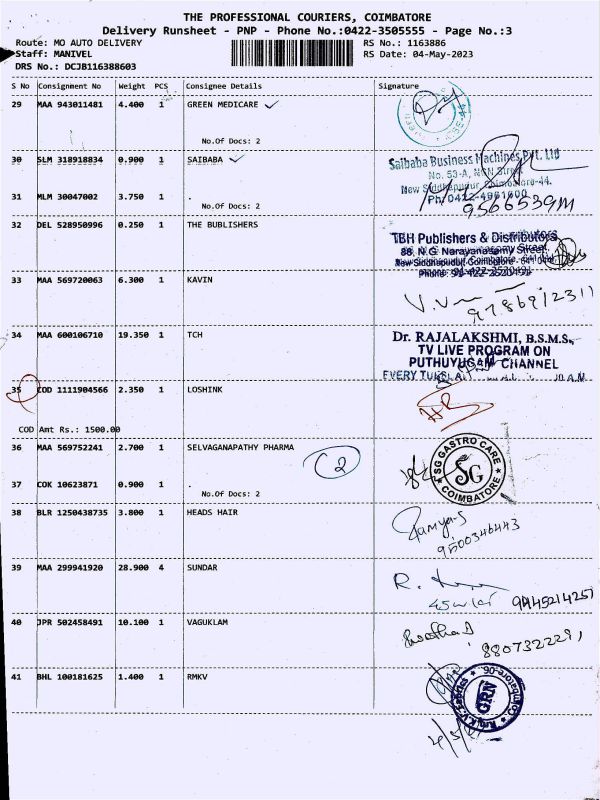 THE PROFESSIONAL COURIERS, COIMBATORE
Delivery Runsheet - PNP - Phone No.:0422-3505555 - Page No.:3
Route: MO AUTO DELIVERY
RS No.: 1163886
Staff: MANIVEL
RS Date: 04-May-2023
DRS No.: DCJB116388603
S No Consignment No Weight PCS Consignee Details Signature
29 MAA 943011481 4.400 1 GREEN MEDICARE
No.Of Docs: 2
30 SLM 318918834 0.900 1 SAIBABA
Saibaba Business Machines Pvt. Ltd
No. 53-A, NGN Street
New Siddhapudur, Coimbatore-44.
Ph: 0422-4961600
31 MLM 30047002 3.750 1 .
No.Of Docs: 2
9566539M
32 DEL 528950996 0.250 1 THE BUBLISHERS
TBH Publishers & Distributors
88, N.G. Narayanasamy Street,
New Siddhapudur, Coimbatore - 641 044
Phone: 91-422-2520491
33 MAA 569720063 6.300 1 KAVIN
9786912311
34 MAA 600106710 19.350 1 TCH
Dr. RAJALAKSHMI, B.S.M.S.,
TV LIVE PROGRAM ON
PUTHUYUGAM CHANNEL
35 COD 1111904566 2.350 1 LOSHINK
COD Amt Rs.: 1500.00
36 MAA 569752241 2.700 1 SELVAGANAPATHY PHARMA
2
SG GASTRO CARE
SG
COIMBATORE
37 COK 10623871 0.900 1 .
No.Of Docs: 2
38 BLR 1250438735 3.800 1 HEADS HAIR
Ramya.S
9500346443
39 MAA 299941920 28.900 4 SUNDAR
9445214257
40 JPR 502458491 10.100 1 VAGUKLAM
880732229,
41 BHL 100181625 1.400 1 RMKV
GRN